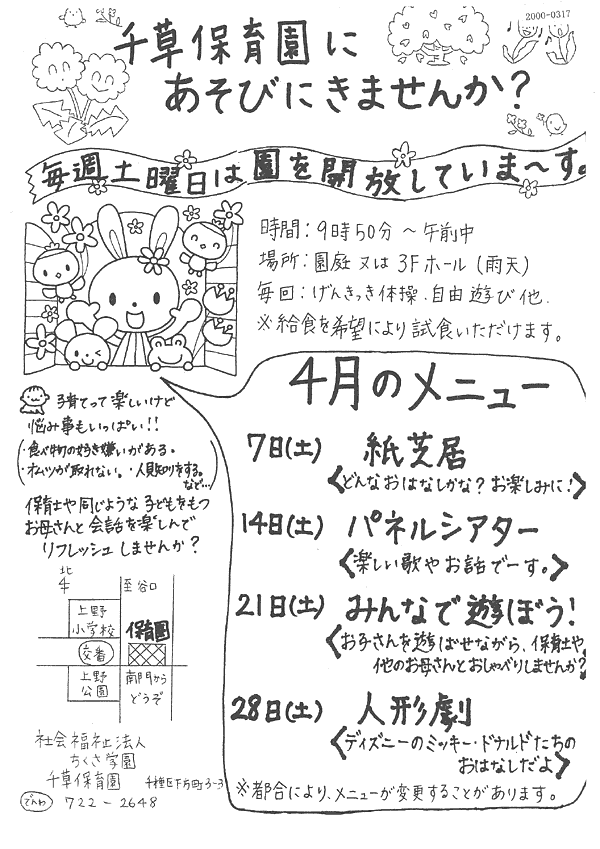 2000-0317
千草保育園に
あそびにきませんか?
毎週土曜日は園を開放していま〜す。
時間:9時50分〜午前中
場所:園庭又は3Fホール(雨天)
毎回:げんきっき体操.自由遊び他.
※給食を希望により試食いただけます。
子育てって楽しいけど
悩み事もいっぱい!!
・食べ物の好き嫌いがある。
・オムツが取れない。・人見知りをする。
など…
保育士や同じような子どもをもつ
お母さんと会話を楽しんで
リフレッシュしませんか?
北
至谷口
上野
小学校
保育園
交番
上野
公園
南門から
どうぞ
社会福祉法人
ちくさ学園
千草保育園
千種区下方町3-3
でんわ 722-2648
4月のメニュー
7日(土) 紙芝居
<どんなおはなしかな?お楽しみに!>
14日(土) パネルシアター
<楽しい歌やお話でーす。>
21日(土) みんなで遊ぼう!
<お子さんを遊ばせながら、保育士や
他のお母さんとおしゃべりしませんか?
28日(土) 人形劇
<ディズニーのミッキー・ドナルドたちの
おはなしだよ>
※都合により、メニューが変更することがあります。